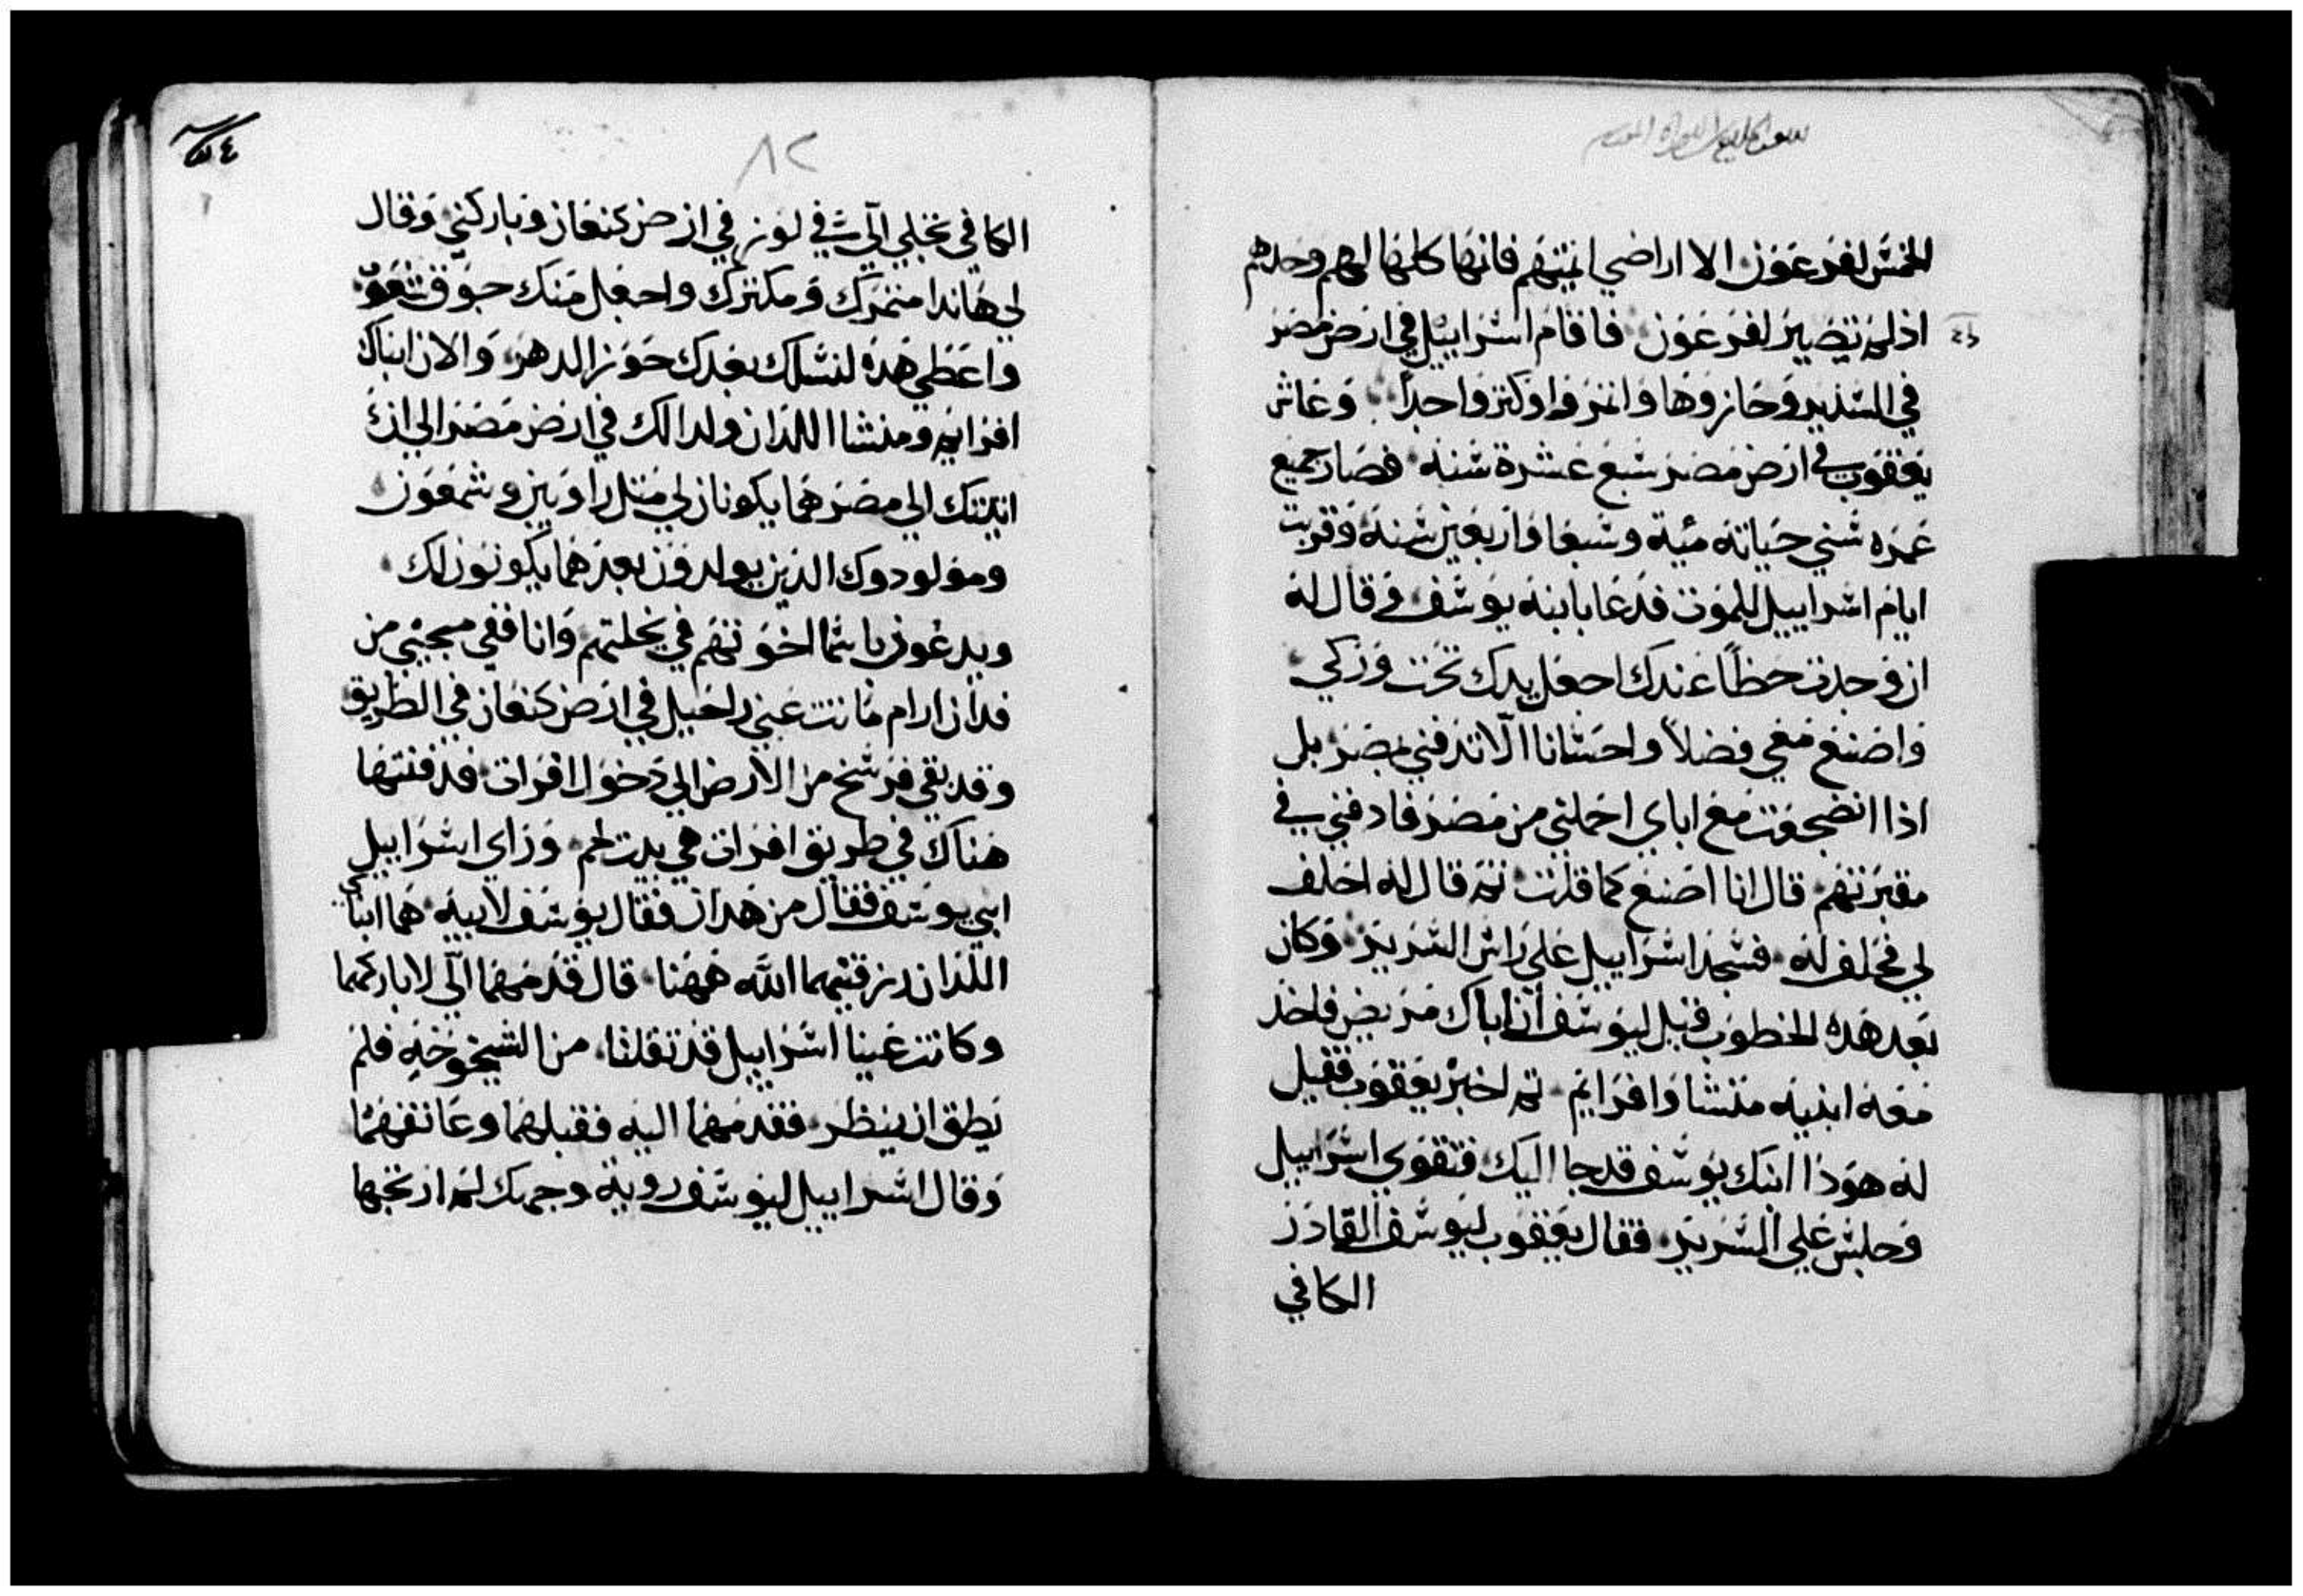 الخمس لفرعون الا اراضي ايمتهم فانها كلها لهم وحدهم
اذ لم تصير لفرعون فاقام اسراييل في ارض مصر
في السدير وحازوها واثمروا وكثروا جداً وعاش
يعقوب في ارض مصر سبع عشرة سنه فصار جميع
عمره سني حياته مئية وسبعا واربعين سنة وقربت
ايام اسراييل للموت فدعا بابنه يوسف و قال له
ان وجدت حظاً عندك اجعل يدك تحت وركي
واصنع معي فضلاً واحسانا الّا تدفني بمصر بل
اذا انضجعت مع اباي احملني من مصر فادفني في
مقبرتهم قال انا اصنع كما قلت ثم قال له احلف
لي فحلف له فسجد اسراييل على راس السرير وكان
بعد هذه الخطوب قيل ليوسف ان اباك مريض فاخذ
معه ابنيه منشا وافرايم ثم اخبر يعقوب فقيل
له هوذا ابنك يوسف قد جا اليك فتقوي اسراييل
وجلس علي السرير فقال يعقوب ليوسف القادر
الكافي
٨٢
الكافي تجلي الّي في لوز في ارض كنعان وباركني وقال
لي هاندا مثمرك ومكثرك واجعل منك جوق شعوب
واعطي هذه لنسلك بعدك حوز الدهر والان ابناك
افرايم ومنشا اللذان ولدا لك في ارض مصر الي ان
اتيتك الي مصر هما يكونان لي مثل راوبين وشمعون
ومولودوك الذين يولدون بعدهما يكونون لك
ويدعون باسما اخوتهم في نحلتهم وانا ففي مجيي من
فدان ارام ماتت عني راحيل في ارض كنعان في الطريق
وقد بقي فرسخ من الارض الي دخول افرات فدفنتها
هناك في طريق افرات هي بيت لحم وراي اسراييل
ابني يوسف فقال من هدان فقال يوسف لابيه هما ابناي
اللذان رزقنيهما الله ههنا قال قدمهما الّي لاباركهما
وكانت عينا اسراييل قد ثقلتا من الشيخوخه فلم
يطق ان ينظر فقدمهما اليه فقبلهما وعانقهما
وقال اسراييل ليوسف روية وجهك لم ارتجها